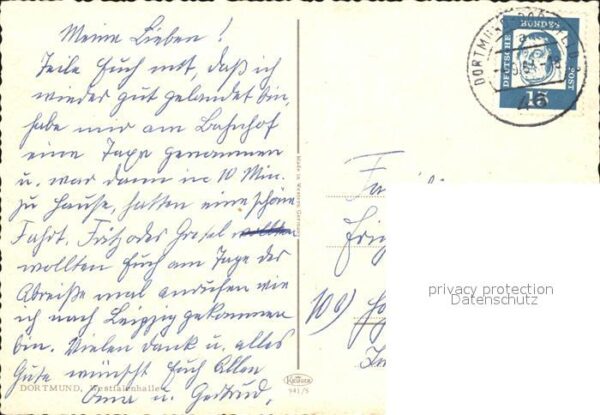 Meine Lieben!
Teile Euch mit, daß ich
wieder gut gelandet bin,
habe mir am Bahnhof
eine Taxe genommen
u. war dann in 10 Min.
zu Hause, hatten eine schöne
Fahrt. Fritz oder Gretel wollten
wollten Euch am Tage der
Abreiße mal anrufen wie
ich nach Leipzig gekommen
bin. Vielen Dank u. alles
Gute wünscht Euch Allen
Oma u. Gertrud.
DORTMUND, Westfalenhalle
Made in Western Germany
Krüger
941/5
DORTMUND
DEUTSCHE BUNDESPOST
15
100)
privacy protection
Datenschutz